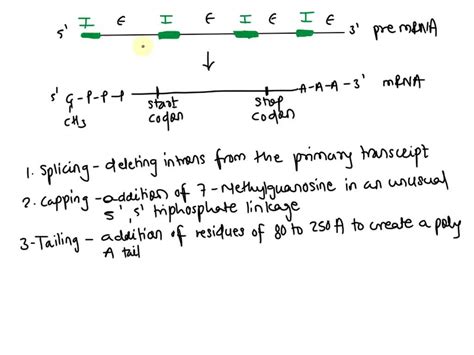 I E I E I E
5' 3' pre mRNA
5' G-P-P-P start codon stop codon A-A-A-3' mRNA
CH3
1. Splicing - deleting introns from the primary transcript
2. Capping - addition of 7-Methylguanosine in an unusual
5', 5' triphosphate linkage
3-Tailing - addition of residues of 80 to 250 A to create a poly
A tail